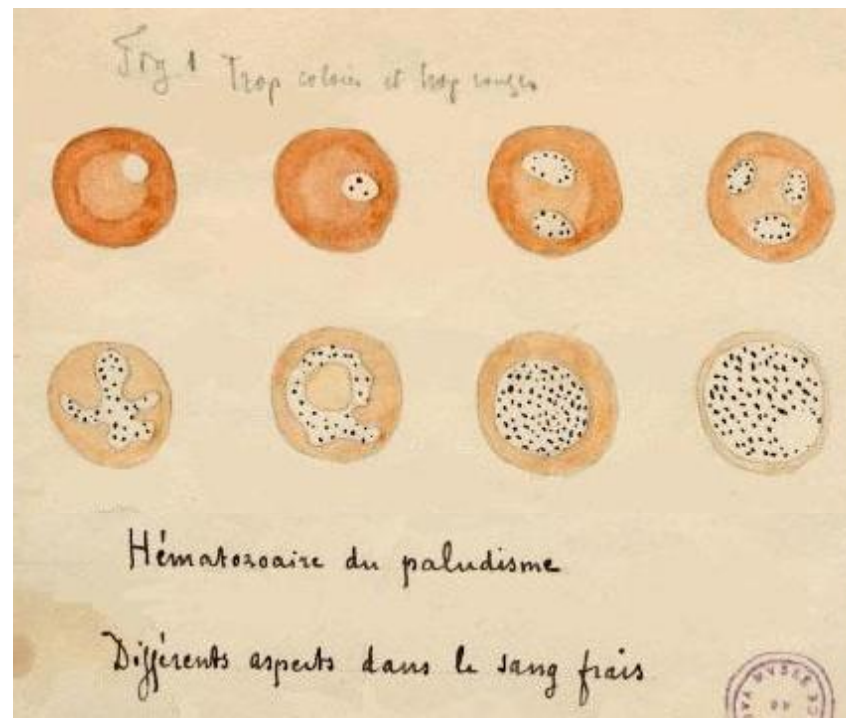 Fig 1 Trop colorés et trop rouges
Hématozoaire du paludisme
Différents aspects dans le sang frais